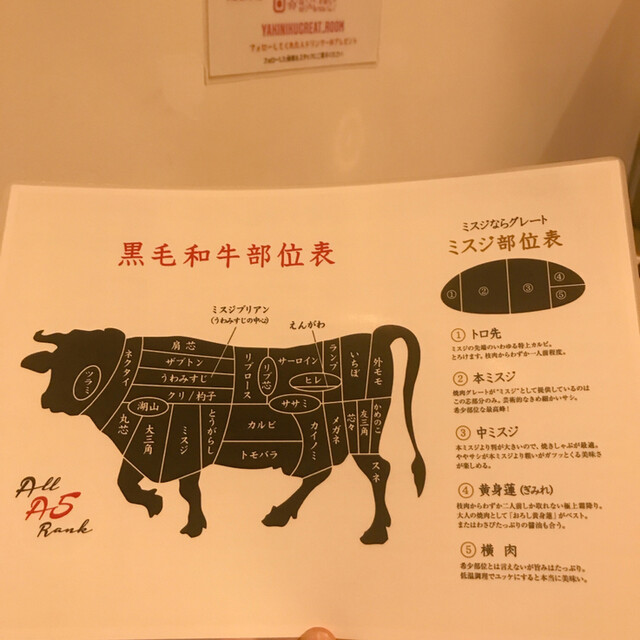 YAKINIKUGREAT_ROOM
フォローしてくれた人ドリンク一杯プレゼント
黒毛和牛部位表
ミスジブリアン
(うわみすじの中心)
えんがわ
ネクタイ
肩芯
ザブトン
うわみすじ
クリ/杓子
リブロース
リブ芯
サーロイン
ヒレ
ランプ
いちぼ
外モモ
ツラミ
丸芯
湖山
大三角
ミスジ
とうがらし
カルビ
トモバラ
ササミ
カイノミ
メガネ
芯々
友三角
かめのこ
スネ
All
A5
Rank
ミスジならグレート
ミスジ部位表
① ② ③ ④ ⑤
① トロ先
ミスジの先端のいわゆる特上カルビ。
とろけます。枝肉からわずか一人前程度。
② 本ミスジ
焼肉グレートが"ミスジ"として提供しているのは
この芯部分のみ。芸術的なきめ細かいサシ。
希少部位な最高峰!
③ 中ミスジ
本ミスジより判が大きいので、焼きしゃぶが最適。
ややサシが本ミスジより粗いがガツッとくる美味さ
が楽しめる。
④ 黄身蓮(ぎみれ)
枝肉からわずか二人前しか取れない極上霜降り。
大人の焼肉として「おろし黄身蓮」がベスト。
またはわさびたっぷりの醤油も合う。
⑤ 横肉
希少部位とは言えないが旨みはたっぷり。
低温調理でユッケにすると本当に美味い。